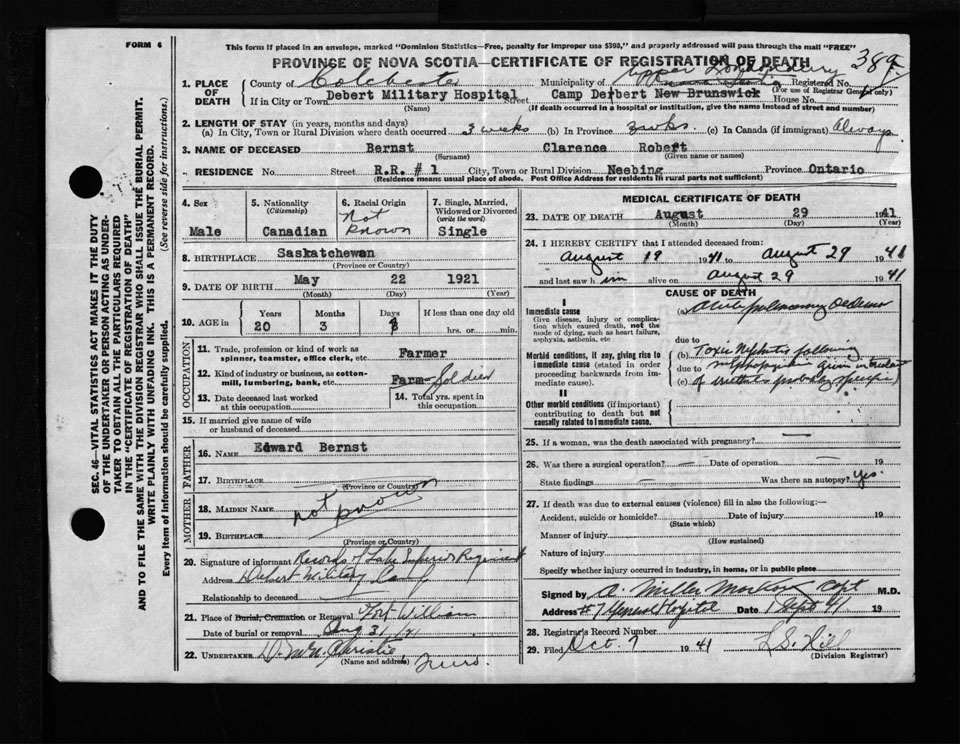 FORM 6
This form if placed in an envelope, marked "Dominion Statistics—Free, penalty for improper use $300," and properly addressed will pass through the mail "FREE"
PROVINCE OF NOVA SCOTIA—CERTIFICATE OF REGISTRATION OF DEATH
389
1. PLACE OF DEATH
County of Colchester Municipality of Upper Londonderry Registered No.
(For use of Registrar General only)
If in City or Town Debert Military Hospital Street Camp Derbert New Brunswick House No.
(Name) (If death occurred in a hospital or institution, give the name instead of street and number)
2. LENGTH OF STAY (in years, months and days)
(a) In City, Town or Rural Division where death occurred 3 weeks (b) In Province 3 wks. (c) In Canada (if immigrant) Always
3. NAME OF DECEASED Bernst Clarence Robert
(Surname) (Given name or names)
RESIDENCE No. Street R.R. # 1 City, Town or Rural Division Neebing Province Ontario
(Residence means usual place of abode. Post Office Address for residents in rural parts not sufficient)
4. Sex
Male
5. Nationality
(Citizenship)
Canadian
6. Racial Origin
Not known
7. Single, Married, Widowed or Divorced
(write the word)
Single
8. BIRTHPLACE Saskatchewan
(Province or Country)
9. DATE OF BIRTH May 22 1921
(Month) (Day) (Year)
10. AGE in
Years Months Days If less than one day old
20 3 8 hrs. or min.
OCCUPATION
11. Trade, profession or kind of work as spinner, teamster, office clerk, etc. Farmer
12. Kind of industry or business, as cotton-mill, lumbering, bank, etc. Farm - Soldier
13. Date deceased last worked at this occupation
14. Total yrs. spent in this occupation
15. If married give name of wife or husband of deceased
FATHER
16. NAME Edward Bernst
17. BIRTHPLACE
(Province or Country)
MOTHER
18. MAIDEN NAME not known
19. BIRTHPLACE
(Province or Country)
20. Signature of informant Records of Lake Superior Regiment
Address Debert Military Camp
Relationship to deceased
21. Place of Burial, Cremation or Removal Fort William
Date of burial or removal Aug 31/41
22. UNDERTAKER Christie Truro.
(Name and address)
MEDICAL CERTIFICATE OF DEATH
23. DATE OF DEATH August 29 1941
(Month) (Day) (Year)
24. I HEREBY CERTIFY that I attended deceased from:
August 19 1941 to August 29 1941
and last saw him alive on August 29 1941
CAUSE OF DEATH
I
Immediate cause
Give disease, injury or complication which caused death, not the mode of dying, such as heart failure, asphyxia, asthenia, etc
(a) Acute pulmonary Oedema
due to
Morbid conditions, if any, giving rise to immediate cause (stated in order proceeding backwards from immediate cause).
(b) Toxic Nephritis following
due to
(c)
II
Other morbid conditions (if important) contributing to death but not causally related to immediate cause.
25. If a woman, was the death associated with pregnancy? —
26. Was there a surgical operation? — Date of operation — 19
State findings — Was there an autopsy? Yes.
27. If death was due to external causes (violence) fill in also the following:—
Accident, suicide or homicide? Date of injury 19
(State which)
Manner of injury
(How sustained)
Nature of injury
Specify whether injury occurred in industry, in home, or in public place
Signed by Capt M.D.
Address #7 General Hospital Date 1 Sept 41 19
28. Registrar's Record Number
29. Filed Oct. 7 1941 L. S. Hill
(Division Registrar)
SEC. 46—VITAL STATISTICS ACT MAKES IT THE DUTY
OF THE UNDERTAKER OR PERSON ACTING AS UNDERTAKER TO OBTAIN ALL THE PARTICULARS REQUIRED
IN THE "CERTIFICATE OF REGISTRATION OF DEATH"
AND TO FILE THE SAME WITH THE DIVISION REGISTRAR WHO SHALL ISSUE THE BURIAL PERMIT.
WRITE PLAINLY WITH UNFADING INK. THIS IS A PERMANENT RECORD.
Every item of information should be carefully supplied. (See reverse side for instructions.)